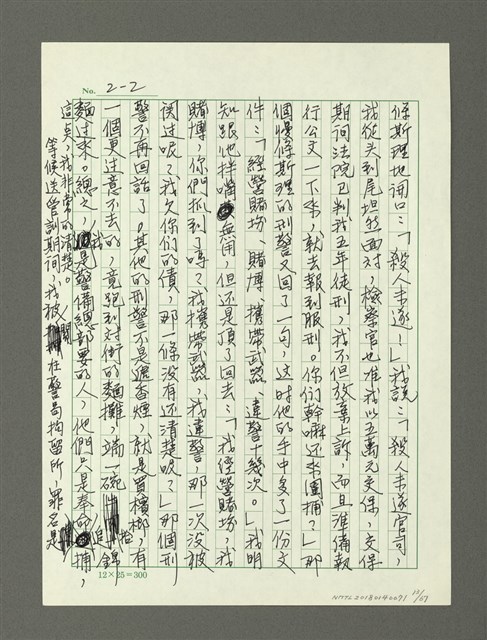 No. 2-2
條斯理地開口：「殺人未遂！」我說：「殺人未遂官司，
我從头到尾坦然面对，檢察官也准我以五萬元交保，交保
期间法院已判我五年徒刑，我不但放棄上訴，而且準備執
行公文一下來，就去報到服刑。你们幹嘛还來圍捕？」那
個慢條斯理的刑警又回了一句，这时他的手中多了一份文
件：「經營賭場、賭博、攜帶武器、違警十幾次。」我明
知跟他拌嘴無用，但还是頂了回去：「我经營賭場，我
賭博，你們抓到了嗎？我攜帶武器，我違警，那一次没被
関过呢？我欠你们的債，那一條没有还清楚呢？」那個刑
警不再回話了。其他的刑警不是遞香煙，就是買檳榔，有
一個更过意不去的，竟跑到对街的麵攤，端一碗 鍋
麵过來。總之，我是警備總部要的人，他們只是奉命追捕，
這美，我非常的清楚。
等候送管訓期间，我被関在警局拘留所，罪名是
12×25=300
NMTL20180140071
15/67